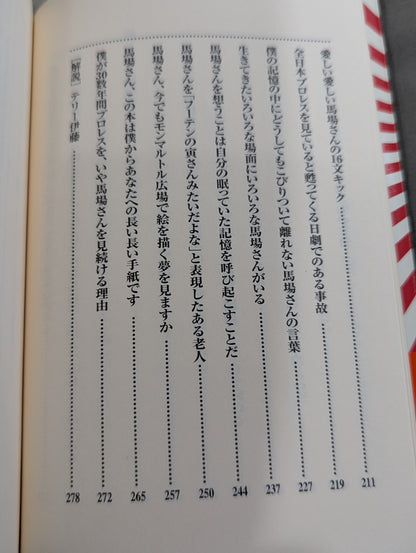 愛しい愛しい馬場さんの16文キック 211
全日本プロレスを見ていると甦ってくる日劇でのある事故 219
僕の記憶の中にどうしてもこびりついて離れない馬場さんの言葉 227
生きてきたいろいろな場面にいろいろな馬場さんがいる 237
馬場さんを想うことは自分の眠っていた記憶を呼び起こすことだ 244
馬場さんを「フーテンの寅さんみたいだよな」と表現したある老人 250
馬場さん、今でもモンマルトル広場で絵を描く夢を見ますか 257
馬場さん、この本は僕からあなたへの長い長い手紙です 265
僕が30数年間プロレスを、いや馬場さんを見続ける理由 272
「解説」テリー伊藤 278